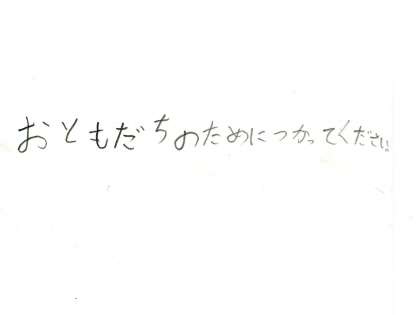 おともだちのためにつかってください